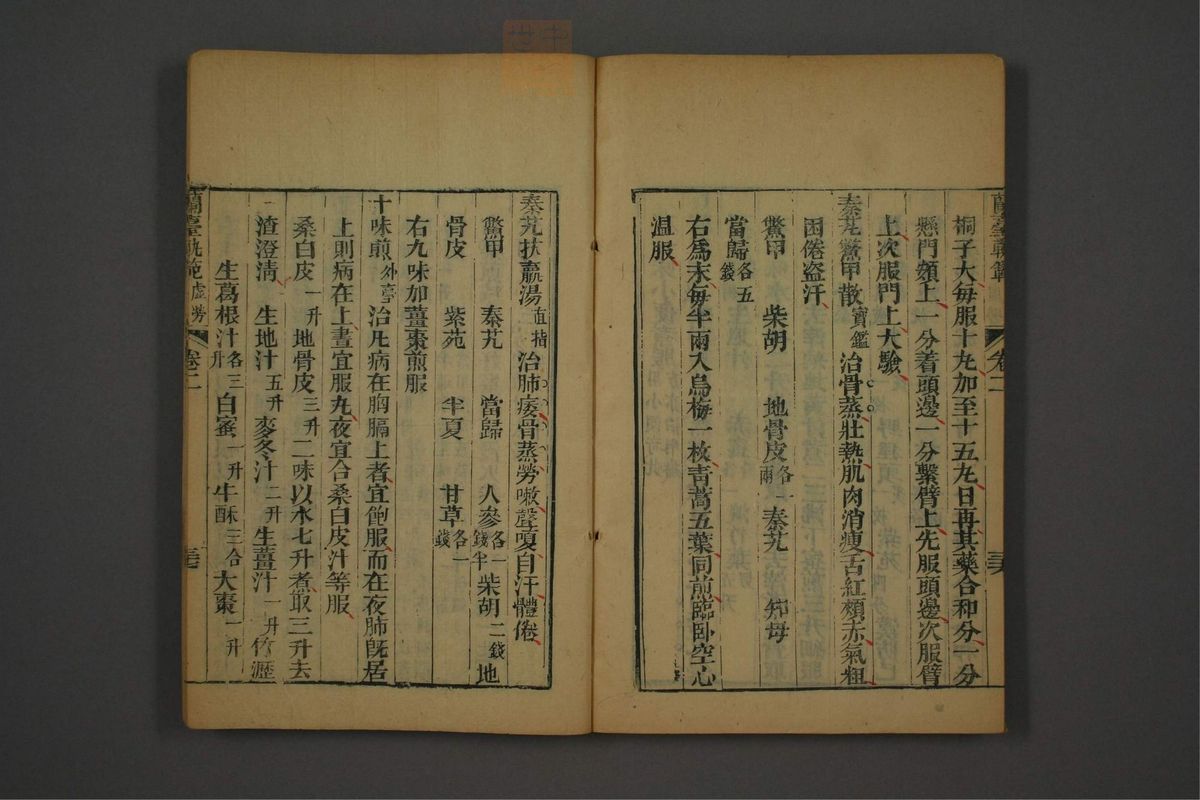 蘭臺軌範
卷二
三六
桐子大每服十丸加至十五丸日再其藥合和分一分
懸門額上一分着頭邊一分繫臂上先服頭邊次服臂
上次服門上大驗
秦艽鱉甲散寶鑑治骨蒸壯熱肌肉消瘦舌紅頰赤氣粗
困倦盜汗
鱉甲 柴胡 地骨皮各一兩 秦艽 知母
當歸各五錢
右爲末每半兩入烏梅一枚青蒿五葉同前臨臥空心
温服
秦艽扶羸湯直指治肺痿骨蒸勞嗽聲嗄自汗體倦
鱉甲 秦艽 當歸 人參各一錢半 柴胡二錢 地
骨皮 紫苑 半夏 甘草各一錢
右九味加薑棗煎服
十味煎外臺治凡病在胸膈上者宜飽服而在夜肺既居
上則病在上晝宜服丸夜宜合桑白皮汁等服
桑白皮一升 地骨皮三升二味以水七升煮取三升去
渣澄清 生地汁五升 麥冬汁二升 生薑汁一升 竹瀝
生葛根汁各三升 白蜜一升 牛酥三合 大棗一升
蘭臺軌範 虛勞
卷二
三七